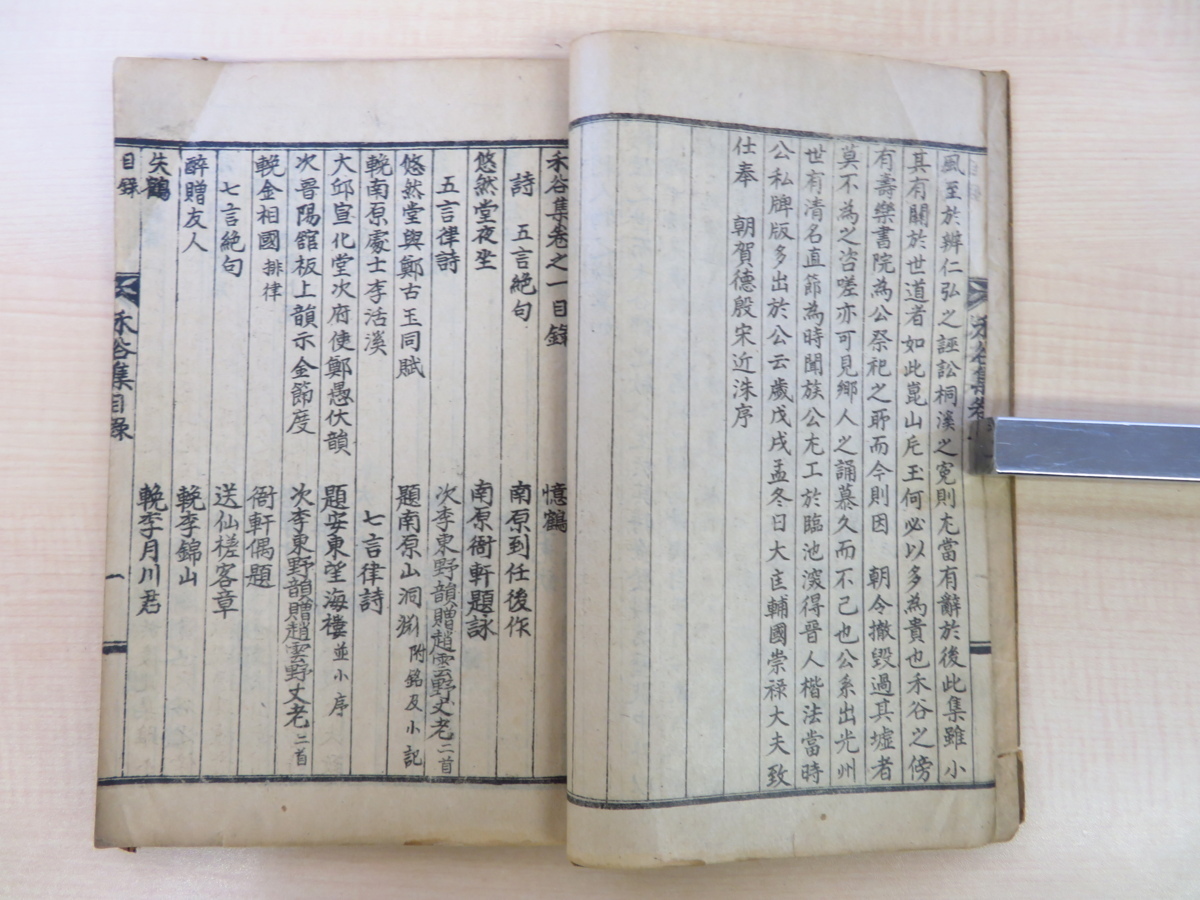 風至於辨仁弘之誣訟桐溪之冤則尢當有辭於後此集雖小
其有關於世道者如此崑山片玉何必以多為貴也禾谷之傍
有壽樂書院為公祭祀之所而今則因 朝令撤毀過其墟者
莫不為之咨嗟亦可見鄉人之誦慕久而不已也公系出光州
世有清名直節為時聞族公尢工於臨池深得晉人楷法當時
公私牌版多出於公云歲戊戌孟冬日大匡輔國崇祿大夫致
仕奉 朝賀德殷宋近洙序
禾谷集卷之一目錄
詩 五言絕句
憶鶴
悠然堂夜坐
南原到任後作
五言律詩
南原衙軒題詠
悠然堂與鄭古玉同賦
次李東野韻贈趙雲野丈老二首
輓南原處士李活溪
題南原山洞 附銘及小記
七言律詩
大邱宣化堂次府使鄭愚伏韻
題安東望海樓並小序
次晉陽舘板上韻示金節度
次李東野韻贈趙雲野丈老二首
輓金相國排律
衙軒偶題
七言絕句
送仙槎客章
醉贈友人
輓李錦山
失鶴
輓李月川君
目錄
禾谷集目錄
一